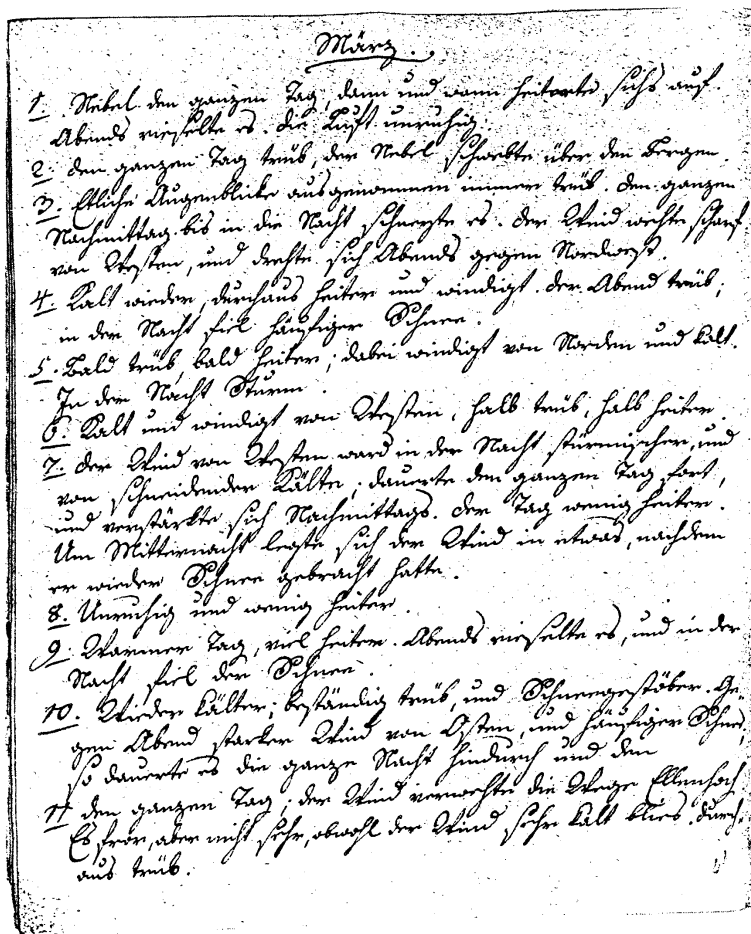 März.
1. Nebel den ganzen Tag, dann und wann heiterte sichs auf.
Abends rieselte es. die Luft unruhig.
2. den ganzen Tag trüb, der Nebel schwebte über den Bergen.
3. Etliche Augenblicke ausgenommen immer trüb. den ganzen
Nachmittag bis in die Nacht schneyte es. der Wind wehte scharf
von Westen, und drehte sich Abends gegen Nordwest.
4. Kalt wieder, durchaus heiter und windigt. der Abend trüb;
in der Nacht fiel häufiger Schnee.
5. Bald trüb, bald heiter; dabei windigt von Norden und kalt.
In der Nacht Sturm.
6. Kalt und windigt von Westen, halb trüb, halb heiter.
7. der Wind von Westen ward in der Nacht stürmischer, und
von schneidender Kälte; dauerte den ganzen Tag fort,
und verstärkte sich Nachmittags. der Tag wenig heiter.
Um Mitternacht legte sich der Wind in etwas, nachdem
er wieder Schnee gebracht hatte.
8. Unruhig und wenig heiter.
9. Warmer Tag, viel heiter. Abends rieselte es, und in der
Nacht fiel der Schnee.
10. Wieder kälter; beständig trüb, und Schneegestöber. Ge-
gen Abend starker Wind von Osten, und häufiger Schnee,
so dauerte es die ganze Nacht hindurch und den
11 den ganzen Tag; der Wind verwehte die Wege Ellenhoch.
Es fror, aber nicht sehr, obwohl der Wind sehr kalt blies. durch-
aus trüb.